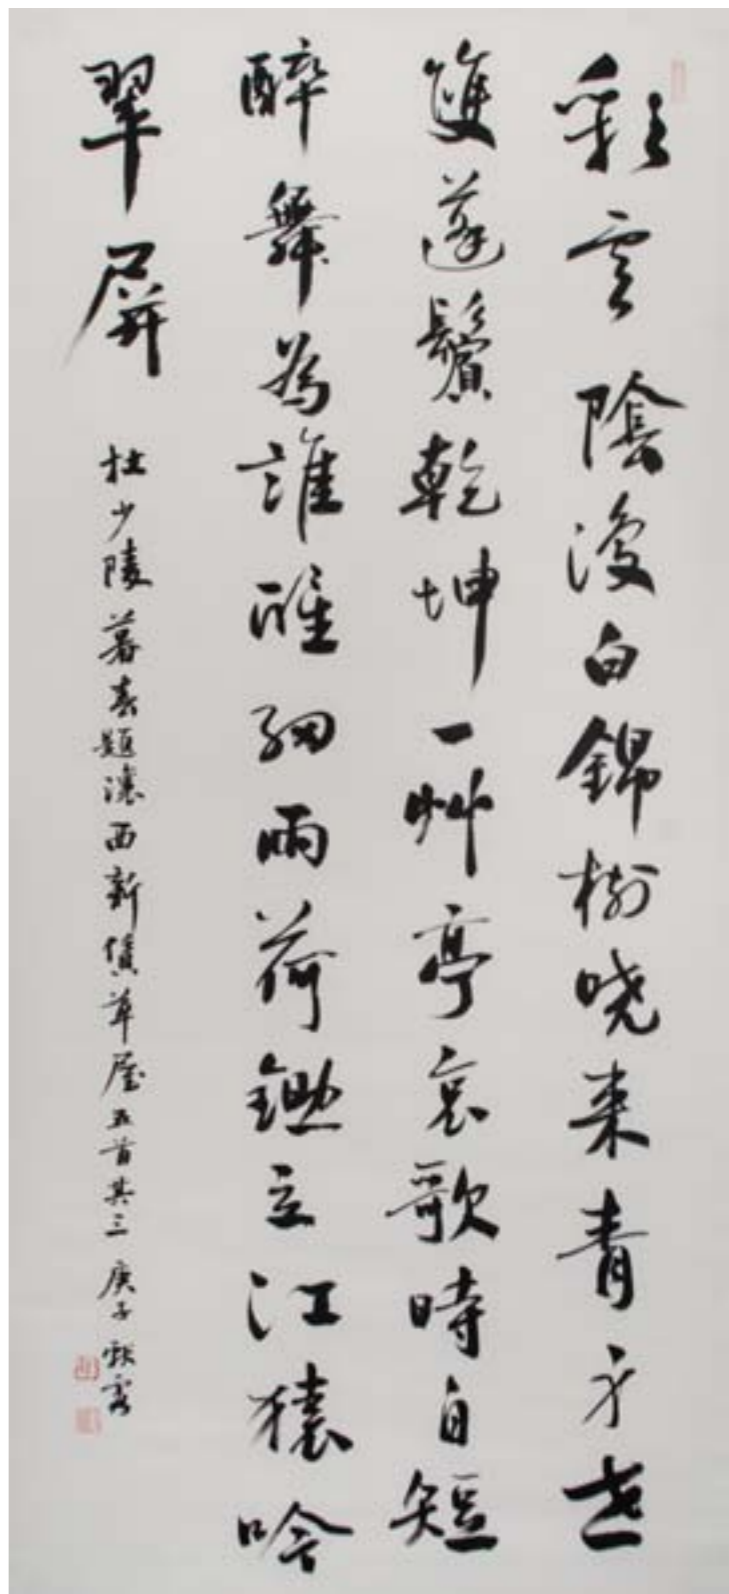 彩雲陰復白錦樹曉來青身世
雙蓬鬢乾坤一艸亭哀歌時自短
醉舞為誰醒細雨荷鋤立江猿吟
翠屏
杜少陵暮春題瀼西新賃草屋五首其三 庚子